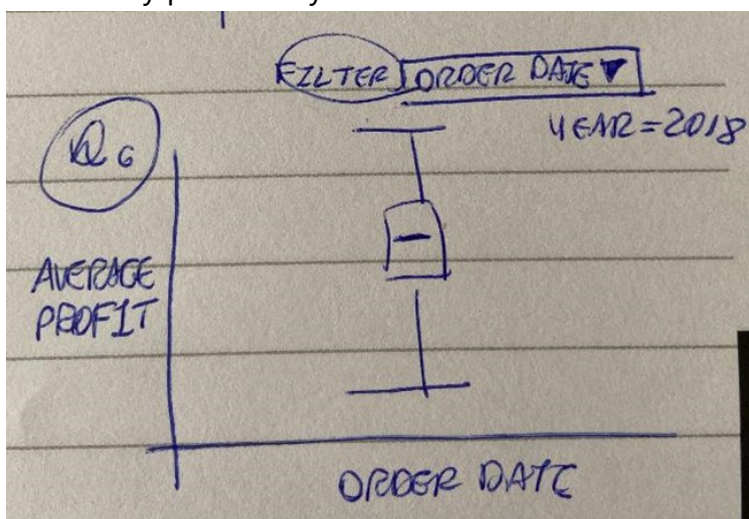 FILTER ORDER DATE ▼
YEAR=2018
Q6
AVERAGE
PROFIT
ORDER DATE